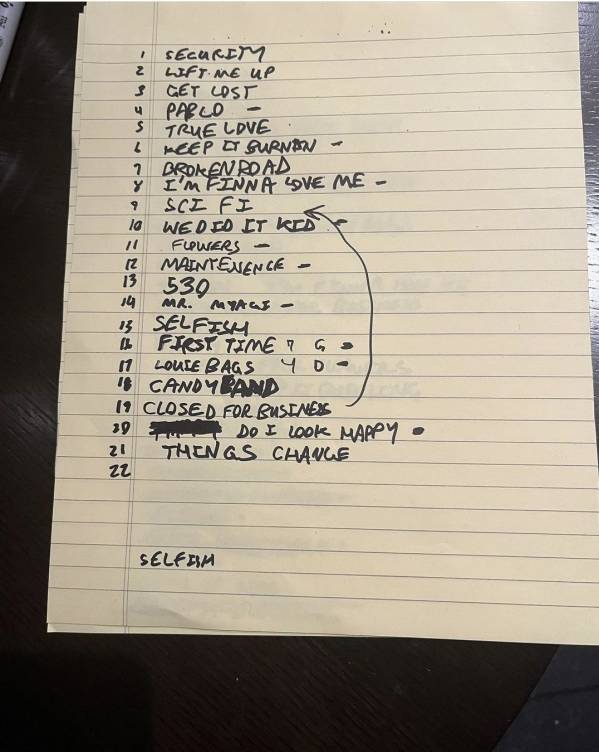 1 SECURITY
2 LIFT ME UP
3 GET LOST
4 PABLO -
5 TRUE LOVE
6 KEEP IT BURNIN -
7 BROKEN ROAD
8 I'M FINNA LOVE ME -
9 SCI FI
10 WE DID IT KID -
11 FLOWERS -
12 MAINTENENCE -
13 530
14 MR. MYAGI -
15 SELFISH
16 FIRST TIME 7 G -
17 LOUIE BAGS 4 D -
18 CANDYLAND
19 CLOSED FOR BUSINESS
20 DO I LOOK HAPPY -
21 THINGS CHANGE
22
SELFISH